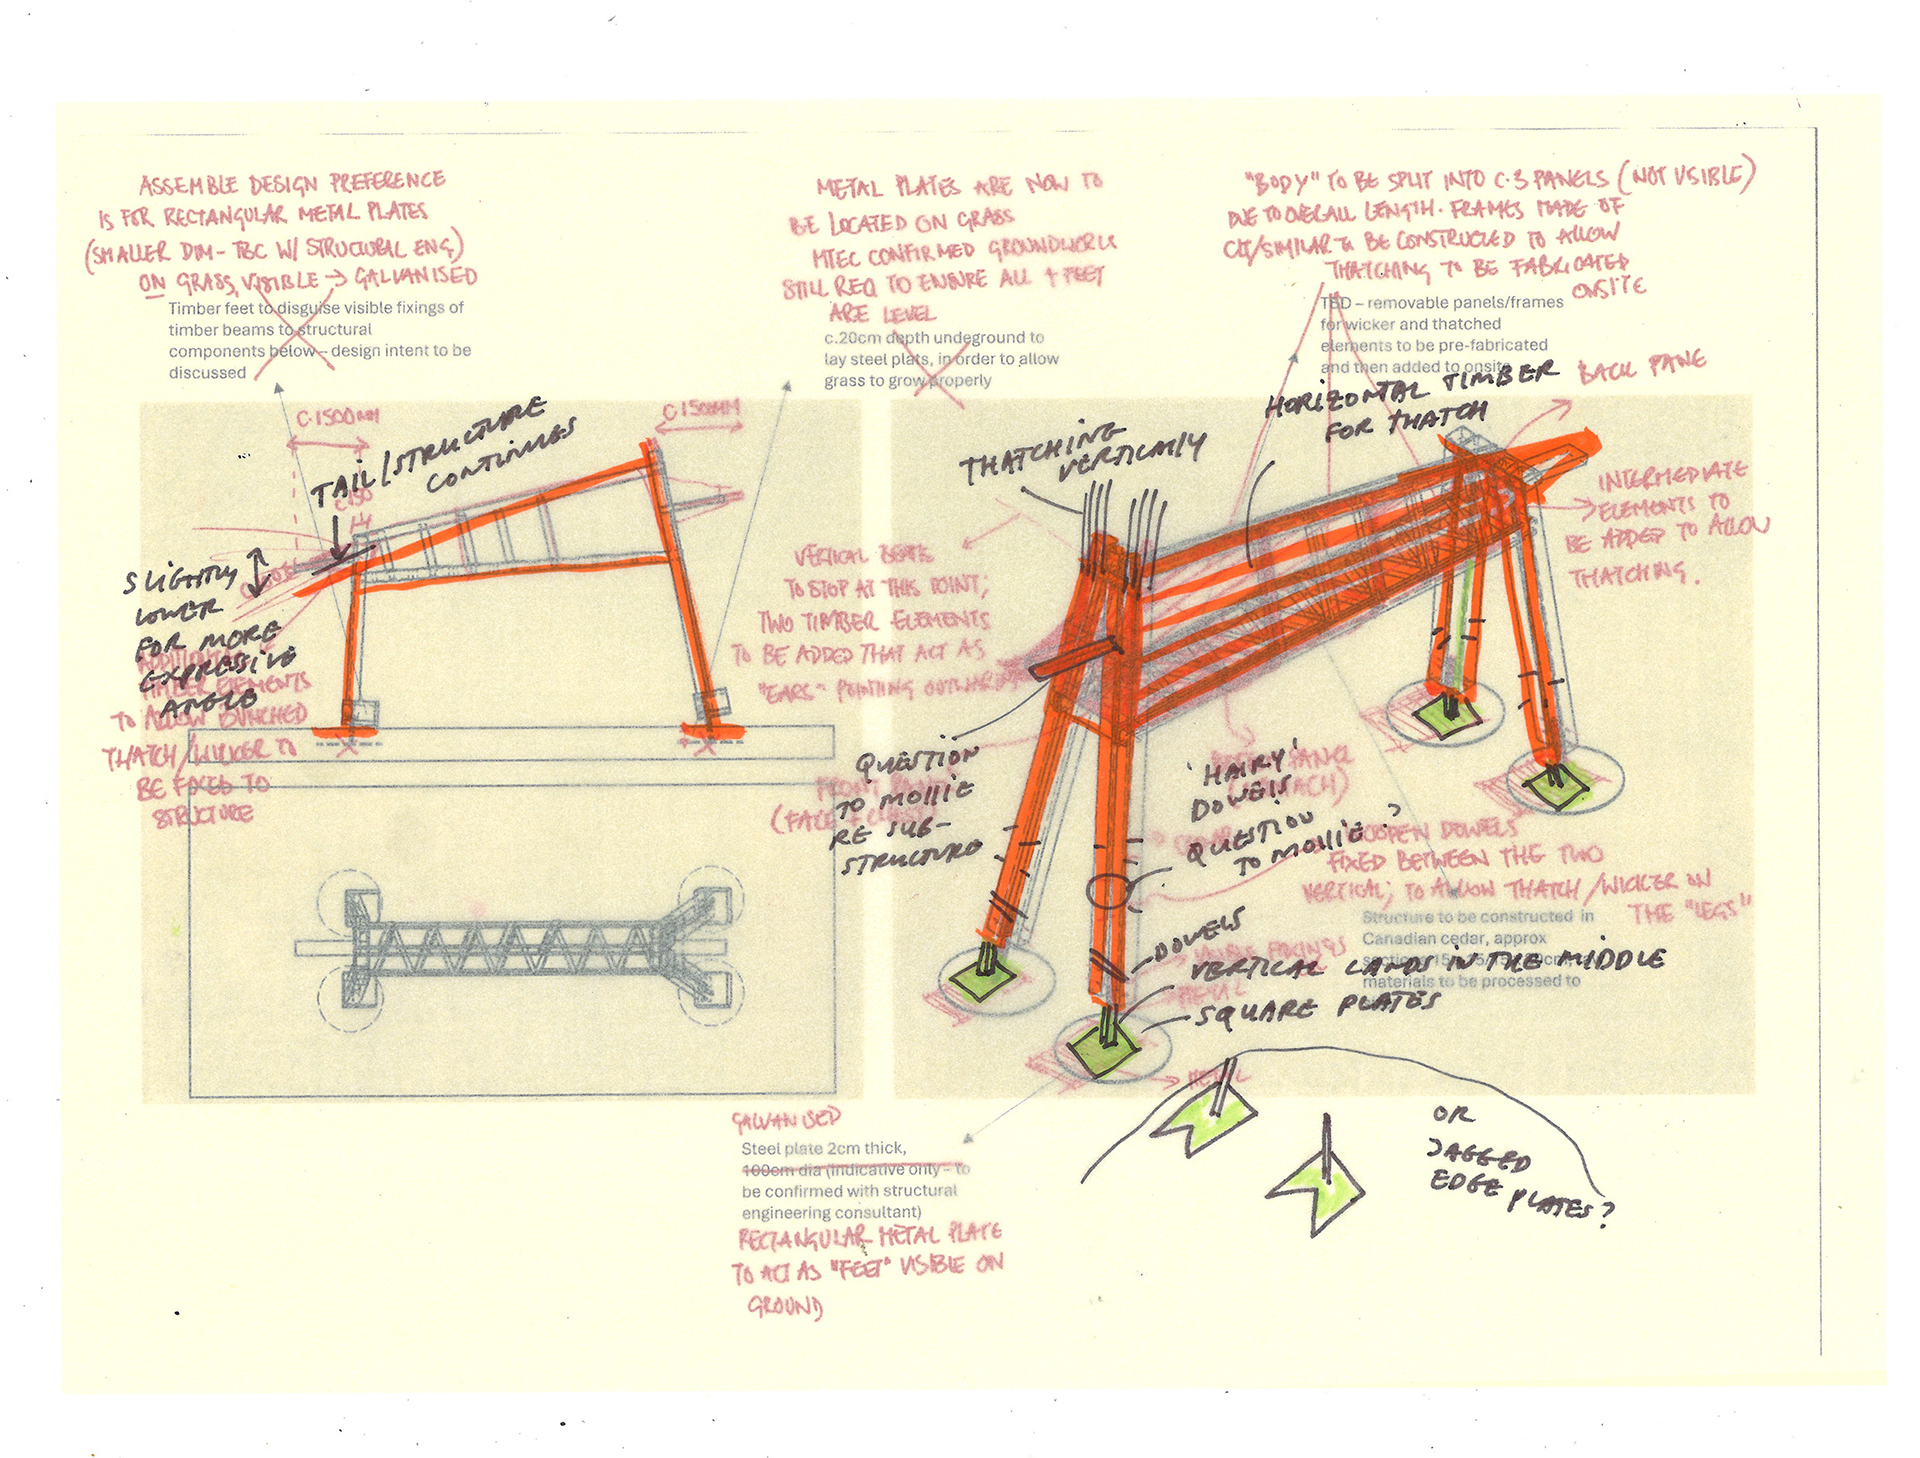 ASSEMBLE DESIGN PREFERENCE
IS FOR RECTANGULAR METAL PLATES
(SMALLER DIM - TBC W/ STRUCTURAL ENG)
ON GRASS, VISIBLE → GALVANISED
Timber feet to disguise visible fixings of
timber beams to structural
components below – design intent to be
discussed
METAL PLATES ARE NOW TO
BE LOCATED ON GRASS
MTEC CONFIRMED GROUNDWORK
STILL REQ TO ENSURE ALL 4 FEET
ARE LEVEL
c.20cm depth undeground to
lay steel plats, in order to allow
grass to grow properly
"BODY" TO BE SPLIT INTO C.3 PANELS (NOT VISIBLE)
DUE TO OVERALL LENGTH. FRAMES MADE OF
CLT/SIMILAR TO BE CONSTRUCTED TO ALLOW
THATCHING TO BE FABRICATED
ONSITE
TBD – removable panels/frames
for wicker and thatched
elements to be pre-fabricated
and then added to onsite
BACK PANE
C.1500MM
C.150MM
TAIL/STRUCTURE
CONTINUES
C.150
SLIGHTLY
LOWER
FOR MORE
EXPRESSIVE
ANGLE
TIMBER ELEMENTS
TO ALLOW BUNCHED
THATCH/WICKER TO
BE FIXED TO
STRUCTURE
THATCHING
VERTICALLY
HORIZONTAL TIMBER
FOR THATCH
INTERMEDIATE
ELEMENTS TO
BE ADDED TO ALLOW
THATCHING.
VERTICAL BEAMS
TO STOP AT THIS POINT;
TWO TIMBER ELEMENTS
TO BE ADDED THAT ACT AS
"EARS" POINTING OUTWARDS
QUESTION
TO MOLLIE
RE SUB-
STRUCTURE
'HAIRY'
DOWELS
QUESTION
TO MOLLIE?
WOODEN DOWELS
FIXED BETWEEN THE TWO
VERTICAL; TO ALLOW THATCH/WICKER ON
THE "LEGS"
Structure to be constructed in
Canadian cedar, approx
materials to be processed to
DOWELS
VERTICAL LANDS IN THE MIDDLE
SQUARE PLATES
METAL
OR
JAGGED
EDGE PLATES?
GALVANISED
Steel plate 2cm thick,
100cm dia (indicative only – to
be confirmed with structural
engineering consultant)
RECTANGULAR METAL PLATE
TO ACT AS "FEET" VISIBLE ON
GROUND